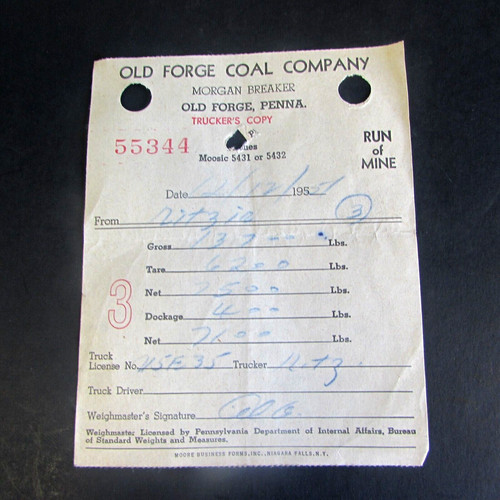 OLD FORGE COAL COMPANY
MORGAN BREAKER
OLD FORGE, PENNA.
TRUCKER'S COPY
55344
Moosic 5431 or 5432
RUN
of
MINE
Date 195
From 3
Gross 13700 Lbs.
Tare 6200 Lbs.
Net 7500 Lbs.
3
Dockage 400 Lbs.
Net 7100 Lbs.
Truck
License No. 45E35 Trucker
Truck Driver
Weighmaster's Signature
Weighmaster Licensed by Pennsylvania Department of Internal Affairs, Bureau
of Standard Weights and Measures.
MOORE BUSINESS FORMS, INC., NIAGARA FALLS, N.Y.